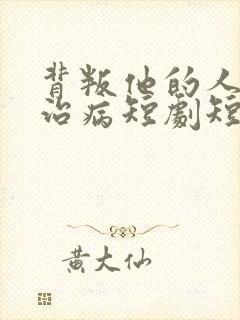 背叛他的人
治病短劇短
黄大仙